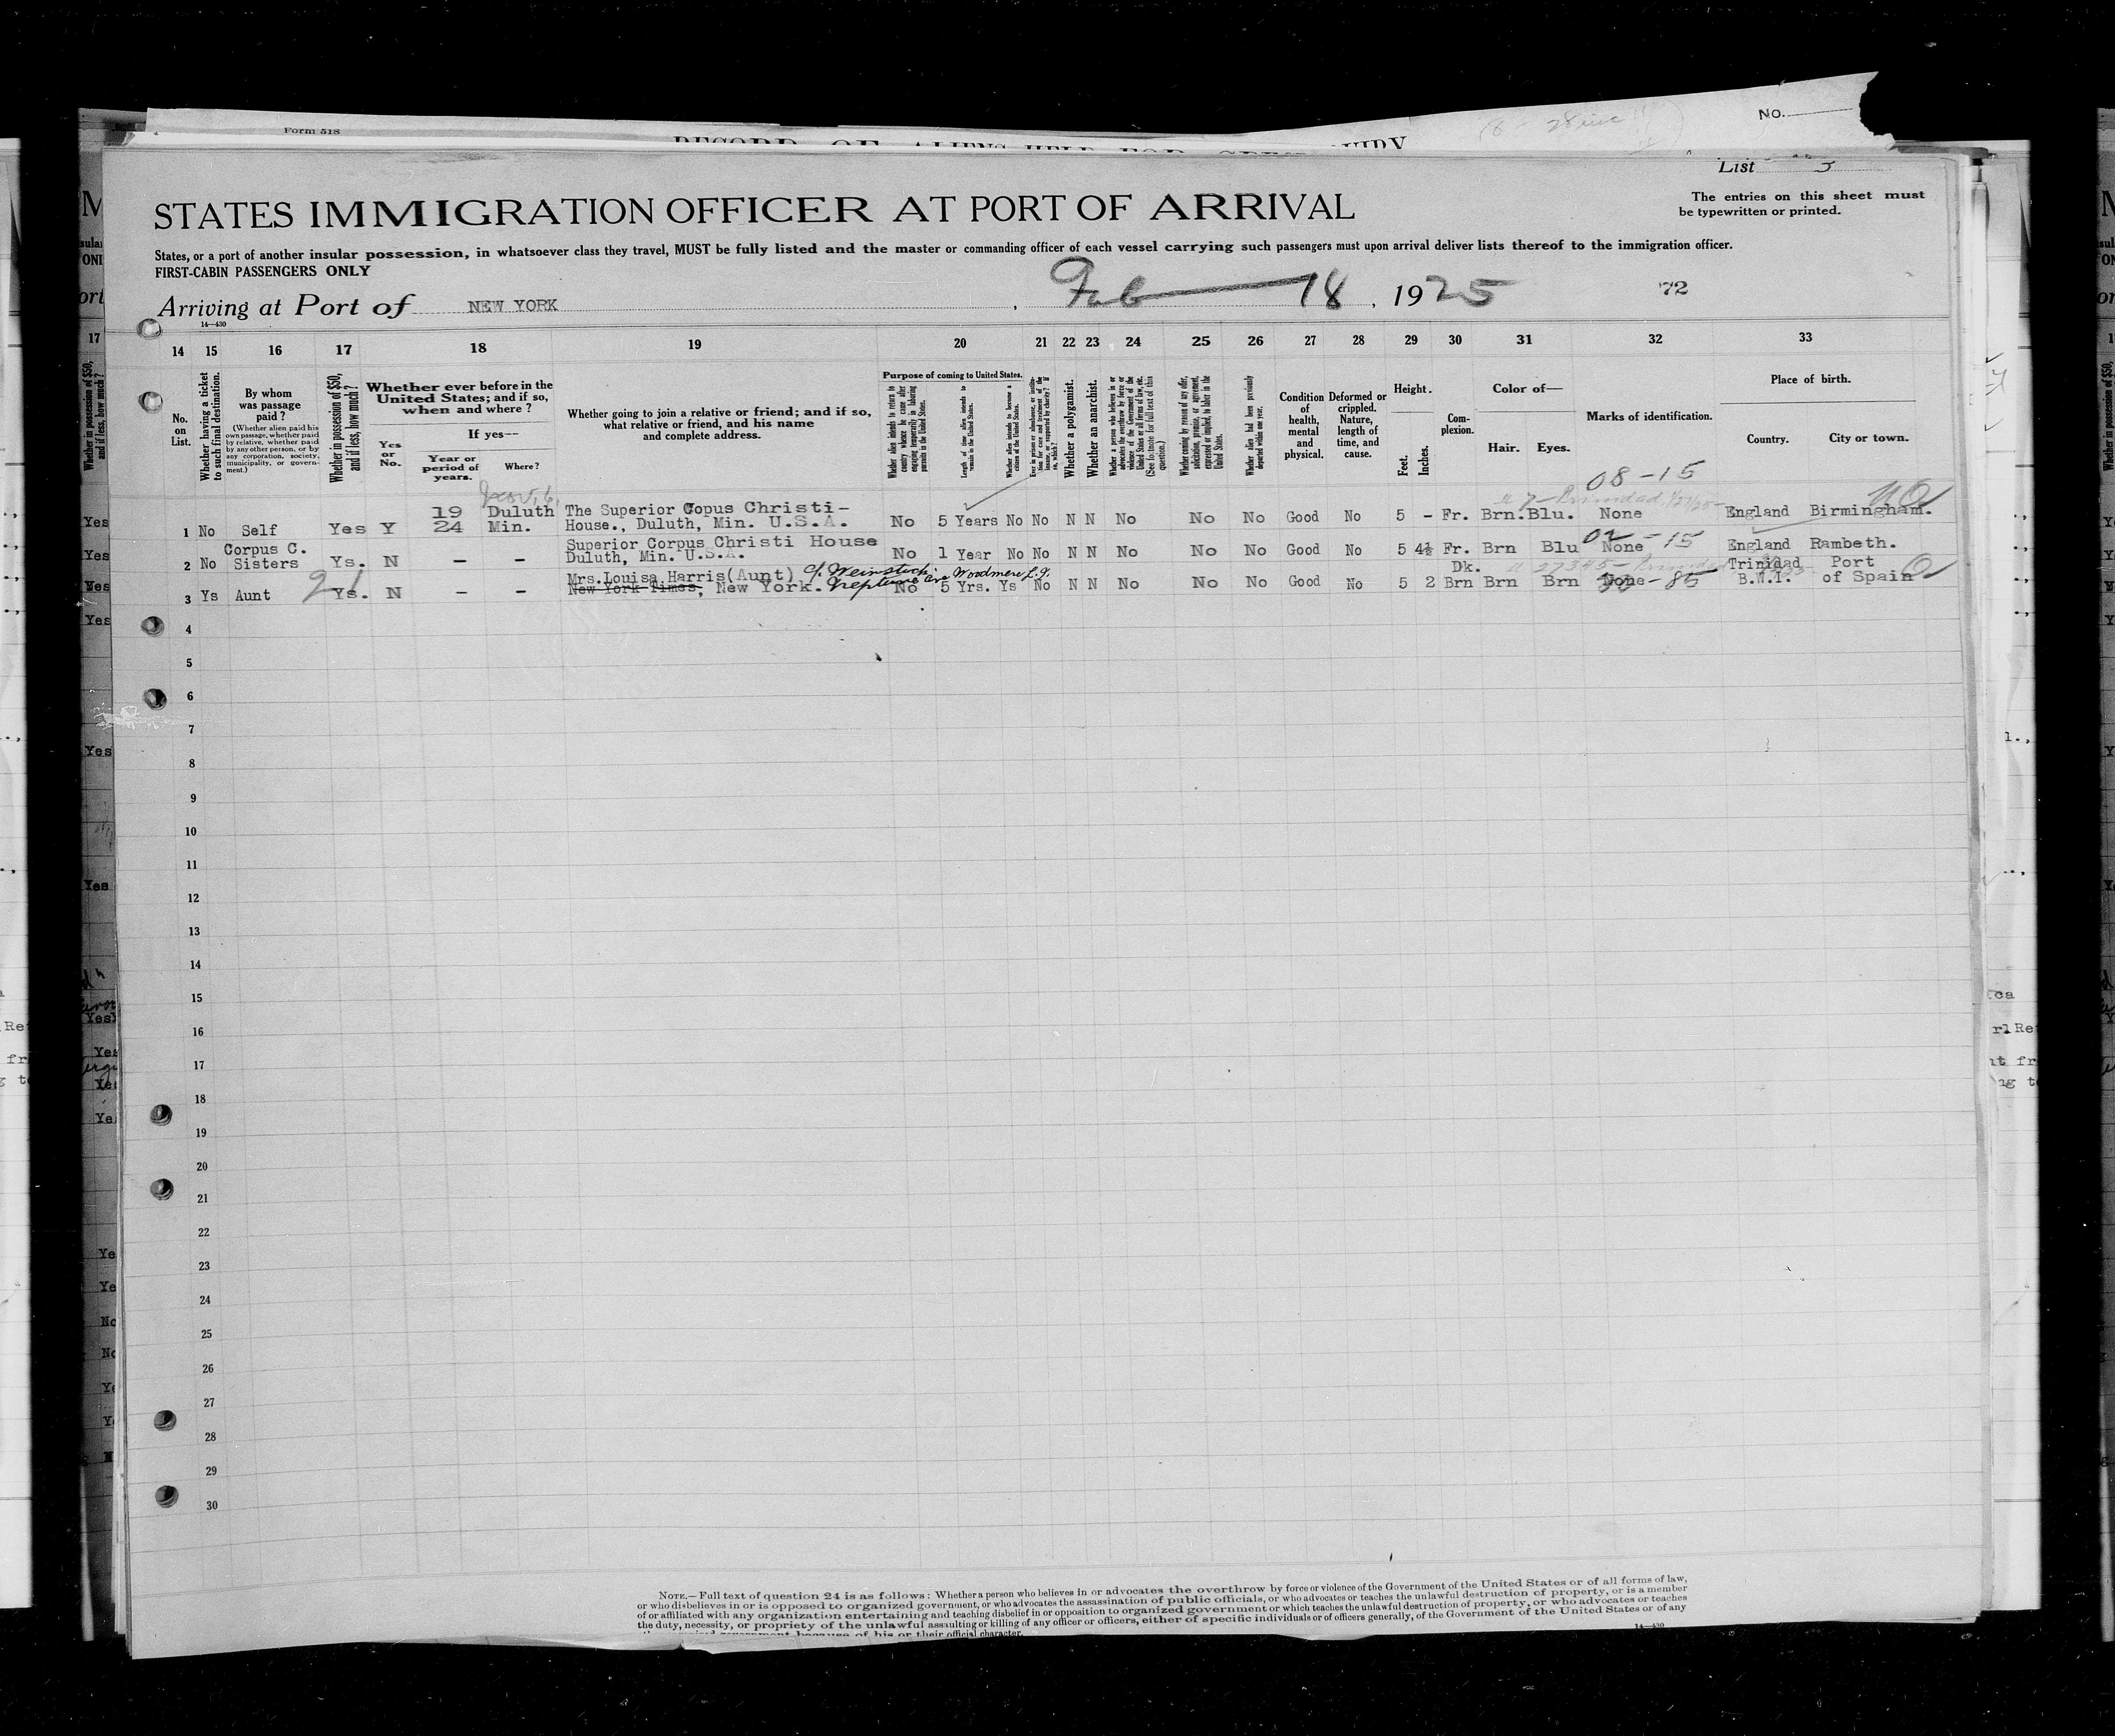 Form 518
NO.
List 5
STATES IMMIGRATION OFFICER AT PORT OF ARRIVAL
The entries on this sheet must
be typewritten or printed.
States, or a port of another insular possession, in whatsoever class they travel, MUST be fully listed and the master or commanding officer of each vessel carrying such passengers must upon arrival deliver lists thereof to the immigration officer.
FIRST-CABIN PASSENGERS ONLY
Arriving at Port of NEW YORK, Feb 18, 1925
72
14—430
14 15 16 17 18 19 20 21 22 23 24 25 26 27 28 29 30 31 32 33
No. on List.
Whether having a ticket to such final destination.
By whom was passage paid?
(Whether alien paid his own passage, whether paid by relative, whether paid by any other person, or by any corporation, society, municipality, or government.)
Whether in possession of $50, and if less, how much?
Whether ever before in the United States; and if so, when and where?
Yes or No.
If yes—
Year or period of years.
Where?
Whether going to join a relative or friend; and if so, what relative or friend, and his name and complete address.
Purpose of coming to United States.
Whether alien intends to return to country whence he came after engaging temporarily in laboring pursuits in the United States.
Length of time alien intends to remain in the United States.
Whether alien intends to become a citizen of the United States.
Ever in prison or almshouse, or institution for care and treatment of the insane, or supported by charity? If so, which?
Whether a polygamist.
Whether an anarchist.
Whether a person who believes in or advocates the overthrow by force or violence of the Government of the United States or all forms of law, etc. (See footnote for full text of this question.)
Whether coming by reason of any offer, solicitation, promise, or agreement, expressed or implied, to labor in the United States.
Whether alien had been previously deported within one year.
Condition of health, mental and physical.
Deformed or crippled. Nature, length of time, and cause.
Height.
Feet. Inches.
Complexion.
Color of—
Hair. Eyes.
Marks of identification.
Place of birth.
Country. City or town.
08-15
1 No Self Yes Y 19 24 Duluth Min. The Superior Copus Christi- House., Duluth, Min. U.S.A. No 5 Years No No N N No No No Good No 5 - Fr. Brn. Blu. None England Birmingham.
02-15
2 No Corpus C. Sisters Ys. N - - Superior Corpus Christi House Duluth, Min. U.S.A. No 1 Year No No N N No No No Good No 5 4½ Fr. Brn Blu None England Rambeth.
3 Ys Aunt Ys. N - - Mrs.Louisa Harris(Aunt) c/o Weinstock New York Times, New York. Neptune Ave Woodmere L.I. No 5 Yrs. Ys No N N No No No Good No 5 2 Dk. Brn Brn Brn None Trinidad B.W.I. Port of Spain
4
5
6
7
8
9
10
11
12
13
14
15
16
17
18
19
20
21
22
23
24
25
26
27
28
29
30
NOTE.—Full text of question 24 is as follows: Whether a person who believes in or advocates the overthrow by force or violence of the Government of the United States or of all forms of law,
or who disbelieves in or is opposed to organized government, or who advocates the assassination of public officials, or who advocates or teaches the unlawful destruction of property, or is a member
of or affiliated with any organization entertaining and teaching disbelief in or opposition to organized government or which teaches the unlawful destruction of property, or who advocates or teaches
the duty, necessity, or propriety of the unlawful assaulting or killing of any officer or officers, either of specific individuals or of officers generally, of the Government of the United States or of any
government because of his or their official character.
14—430